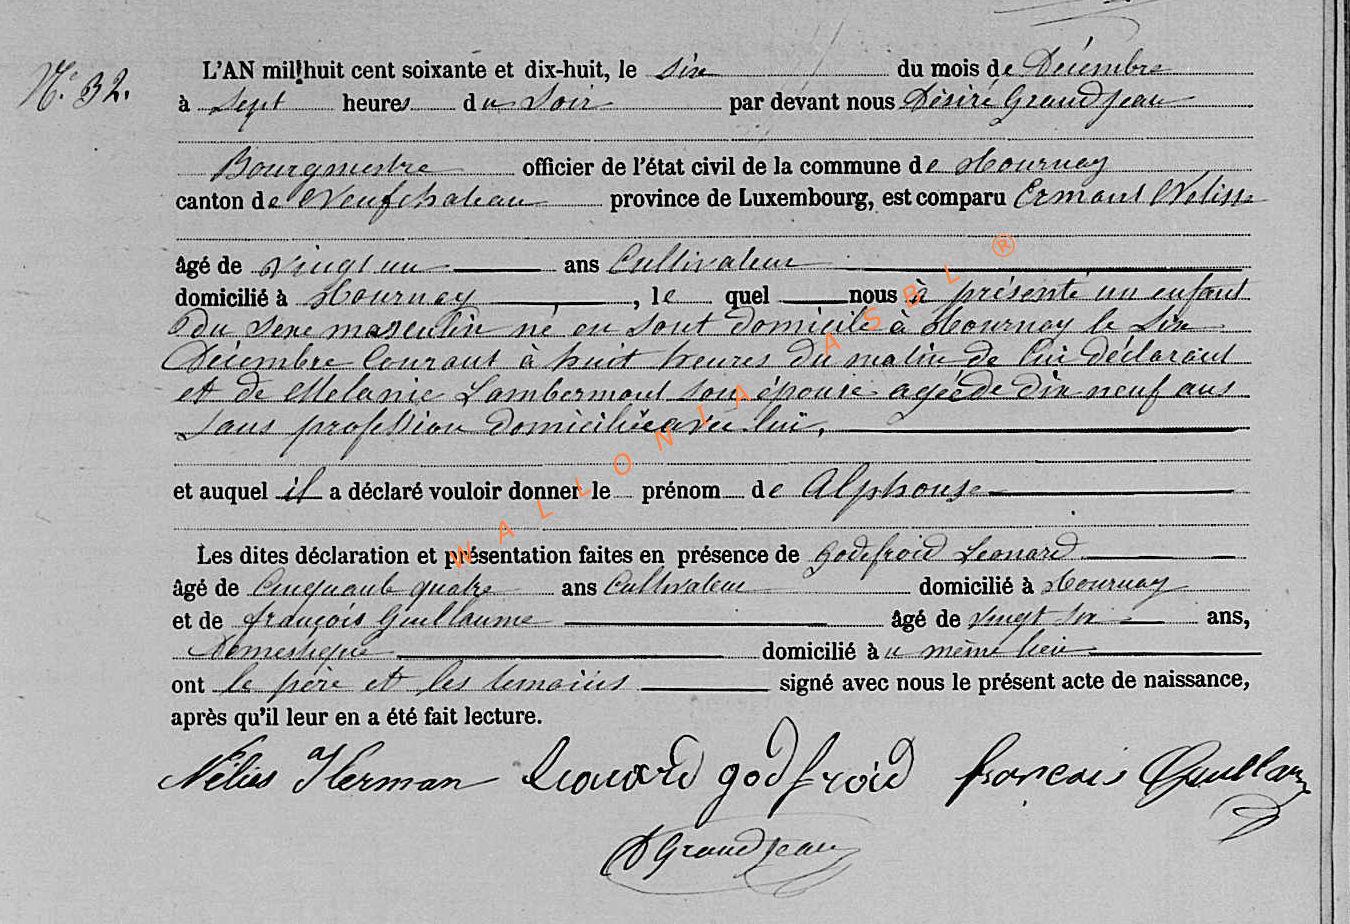 N° 32.
L'AN mil huit cent soixante et dix-huit, le six du mois de Décembre
à Sept heures du Soir par devant nous Désiré Grandjean
Bourgmestre officier de l'état civil de la commune de Hournay
canton de Neufchateau province de Luxembourg, est comparu Ermant Nelisse
âgé de vingt un ans Cultivateur
domicilié à Hournay, le quel nous à présenté un enfant
du sexe masculin né en sont domicile à Hournay le Six
Décembre Courant à huit heures du matin de lui déclarant
et de Melanie Lambermont son épouse agée de dix neuf ans
sans profession domiciliée avec lui,
et auquel il a déclaré vouloir donner le prénom de Alphonse
Les dites déclaration et présentation faites en présence de Godefroid Leonard
âgé de Cinquante quatre ans Cultivateur domicilié à Hournay
et de françois Guillaume âgé de vingt six ans,
Domestique domicilié au même lieu
ont le père et les temoins signé avec nous le présent acte de naissance,
après qu'il leur en a été fait lecture.
Nélius Herman Leonard godfroid francois Guillaume
D Grandjean
WALLONIA ASBL ®